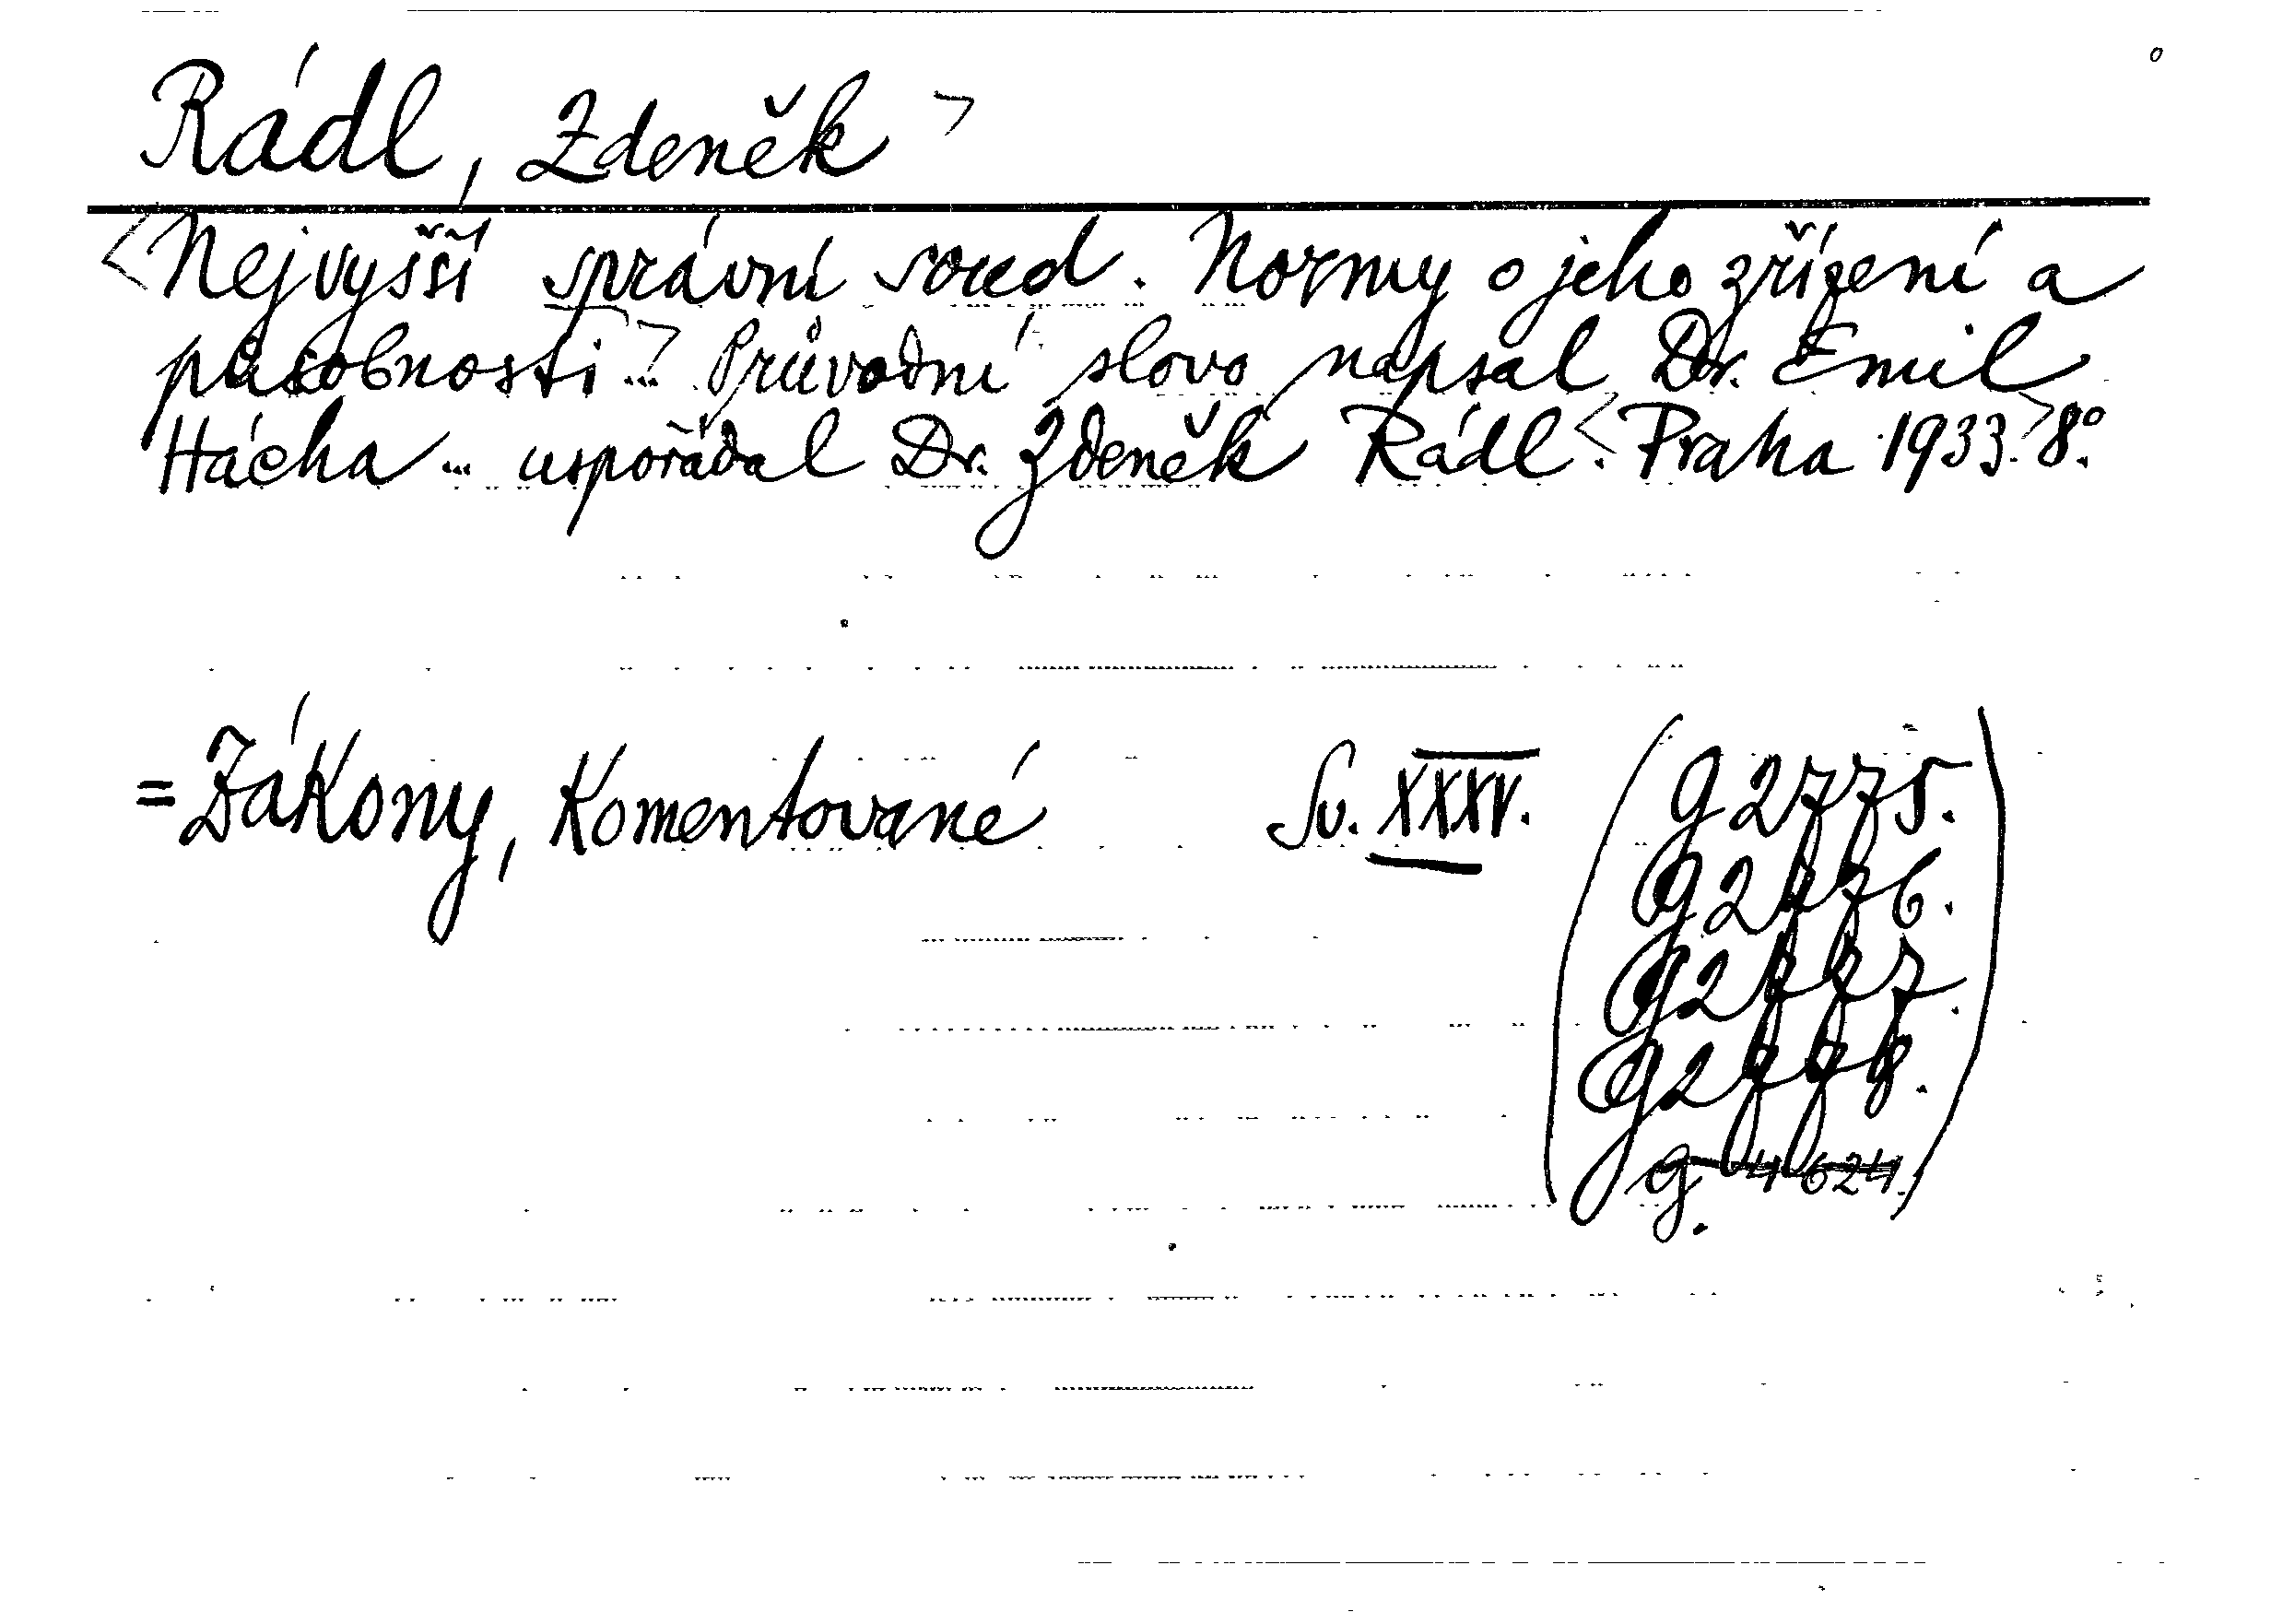 Rádl, Zdeněk >
<Nejvyšší správní soud. Normy o jeho zřízení a
působnosti...> Průvodní slovo napsal Dr. Emil
Hácha ... uspořádal Dr. Zdeněk Rádl. <Praha 1933.> 8°.
= Zákony, Komentované Sv. XXXV. (g 2775.
g 2776.
g 2777.
g 2778.
g 4624.)